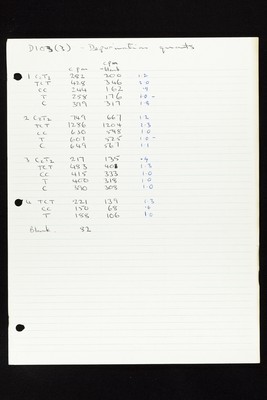 D103(3) - Depurination grants
cpm
cpm -blank
1 C2T2 382 300 1.2
TCT 428 346 1.0
CC 244 162 .9
T 258 176 1.0
C 399 317 1.8
2 C2T2 749 667 1.2
TCT 1286 1204 1.3
CC 680 598 1.0
T 607 525 1.0
C 649 567 1.1
3 C2T2 217 135 .9
TCT 483 401 1.2
CC 415 333 1.0
T 400 318 1.0
C 390 308 1.0
4 TCT 221 139 1.3
CC 150 68
T 188 106 1.0
Blank 82